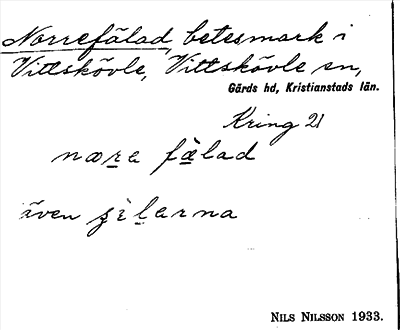 Norrefälad, betesmark i
Vittskövle, Vittskövle sn,
Gärds hd, Kristianstads län.
Kring 21
næra fälad
även
NILS NILSSON 1933.